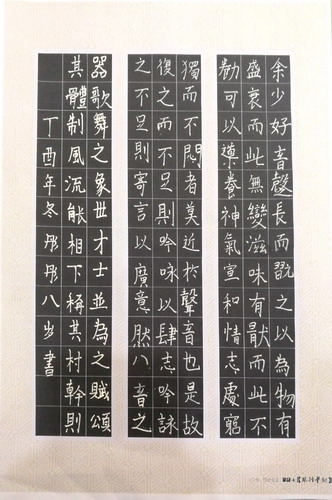 余少好音聲長而翫之以為物有
盛衰而此無變滋味有猒而此不
勌可以導養神氣宣和情志處窮
獨而不悶者莫近於聲音也是故
復之而不足則吟咏以肆志吟詠
之不足則寄言以廣意然八音之
器歌舞之象世才士並為之賦頌
其體制風流能相下稱其村幹則
丁酉年冬彤彤八岁書